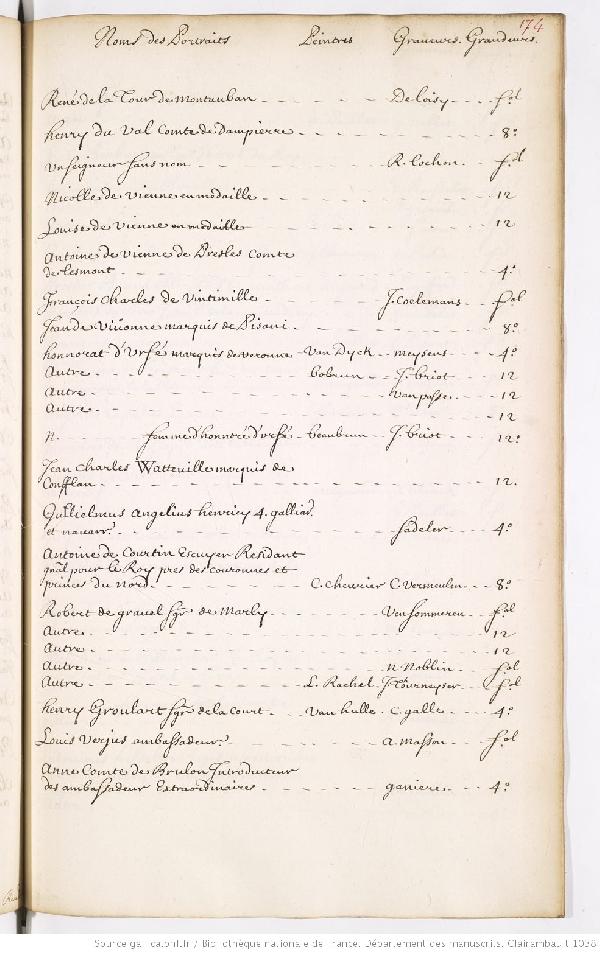 174
Noms des Portraits Peintres Graveurs. Grandeurs.
René de la Tour de Montauban - - - - - Deloisy - - - fol
henry du Val Comte de Dampierre - - - - - 8º
Un seigneur sans nom - - - - - R. Lochon - - fol
Nicolle de Vienne en medaille - - - - - 12
Louise de Vienne en medaille - - - - - 12
Antoine de Vienne de Presles Comte
de lesmont - - - - - 4º
François Charles de Vintimille - - - - - J. Coelemans - - fol
Jean de Vivonne marquis de Pisani - - - - - 8º
honnorat d'Urfé marquis de - Van Dyck - meysens - - - 4º
Autre - - - - - bobrun - - J. briot - - - 12
Autre - - - - - Van passe - - - 12
Autre - - - - - 12
N. femme d'honnoré d'urfé - beaubrun - J. briot - - - 12º
Jean Charles Watteuille marquis de
Confflan - - - - - 12.
Gulliolmus Angelius henrici 4. galliar.
et navarr. - - - - - Sadeler - - 4º
Antoine de Courtin Escuyer Residant
gnãl pour le Roy pres des couronnes et
princes du Nord - - - - - C. Cheuvier C. Vermeulen - - 8º
Robert de gravel sgr de Marly - - - - - Van Sommeren - - fol
Autre - - - - - 12
Autre - - - - - 12
Autre - - - - - N. Noblin - - fol
Autre - - - - - L. Rachel - J. Tourneyser - - fol
henry Groulart sgr de la Court - - Van hulle - C. galle - - 4º
Louis Verjus ambassadeur - - - - - A. Masson - - fol
Anne Comte de Brulon Introducteur
des ambassadeur Extraordinaires - - - - - ganiere - - - 4º
Source gallica.bnf.fr / Bibliothèque nationale de France. Département des manuscrits. Clairambault 1038